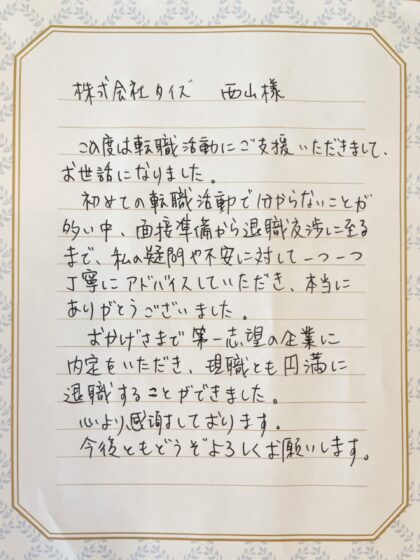 株式会社タイズ　西山様
この度は転職活動にご支援いただきまして、
お世話になりました。
初めての転職活動で分からないことが
多い中、面接準備から退職交渉に至る
まで、私の疑問や不安に対して一つ一つ
丁寧にアドバイスしていただき、本当に
ありがとうございました。
おかげさまで第一志望の企業に
内定をいただき、現職とも円満に
退職することができました。
心より感謝しております。
今後ともどうぞよろしくお願いします。